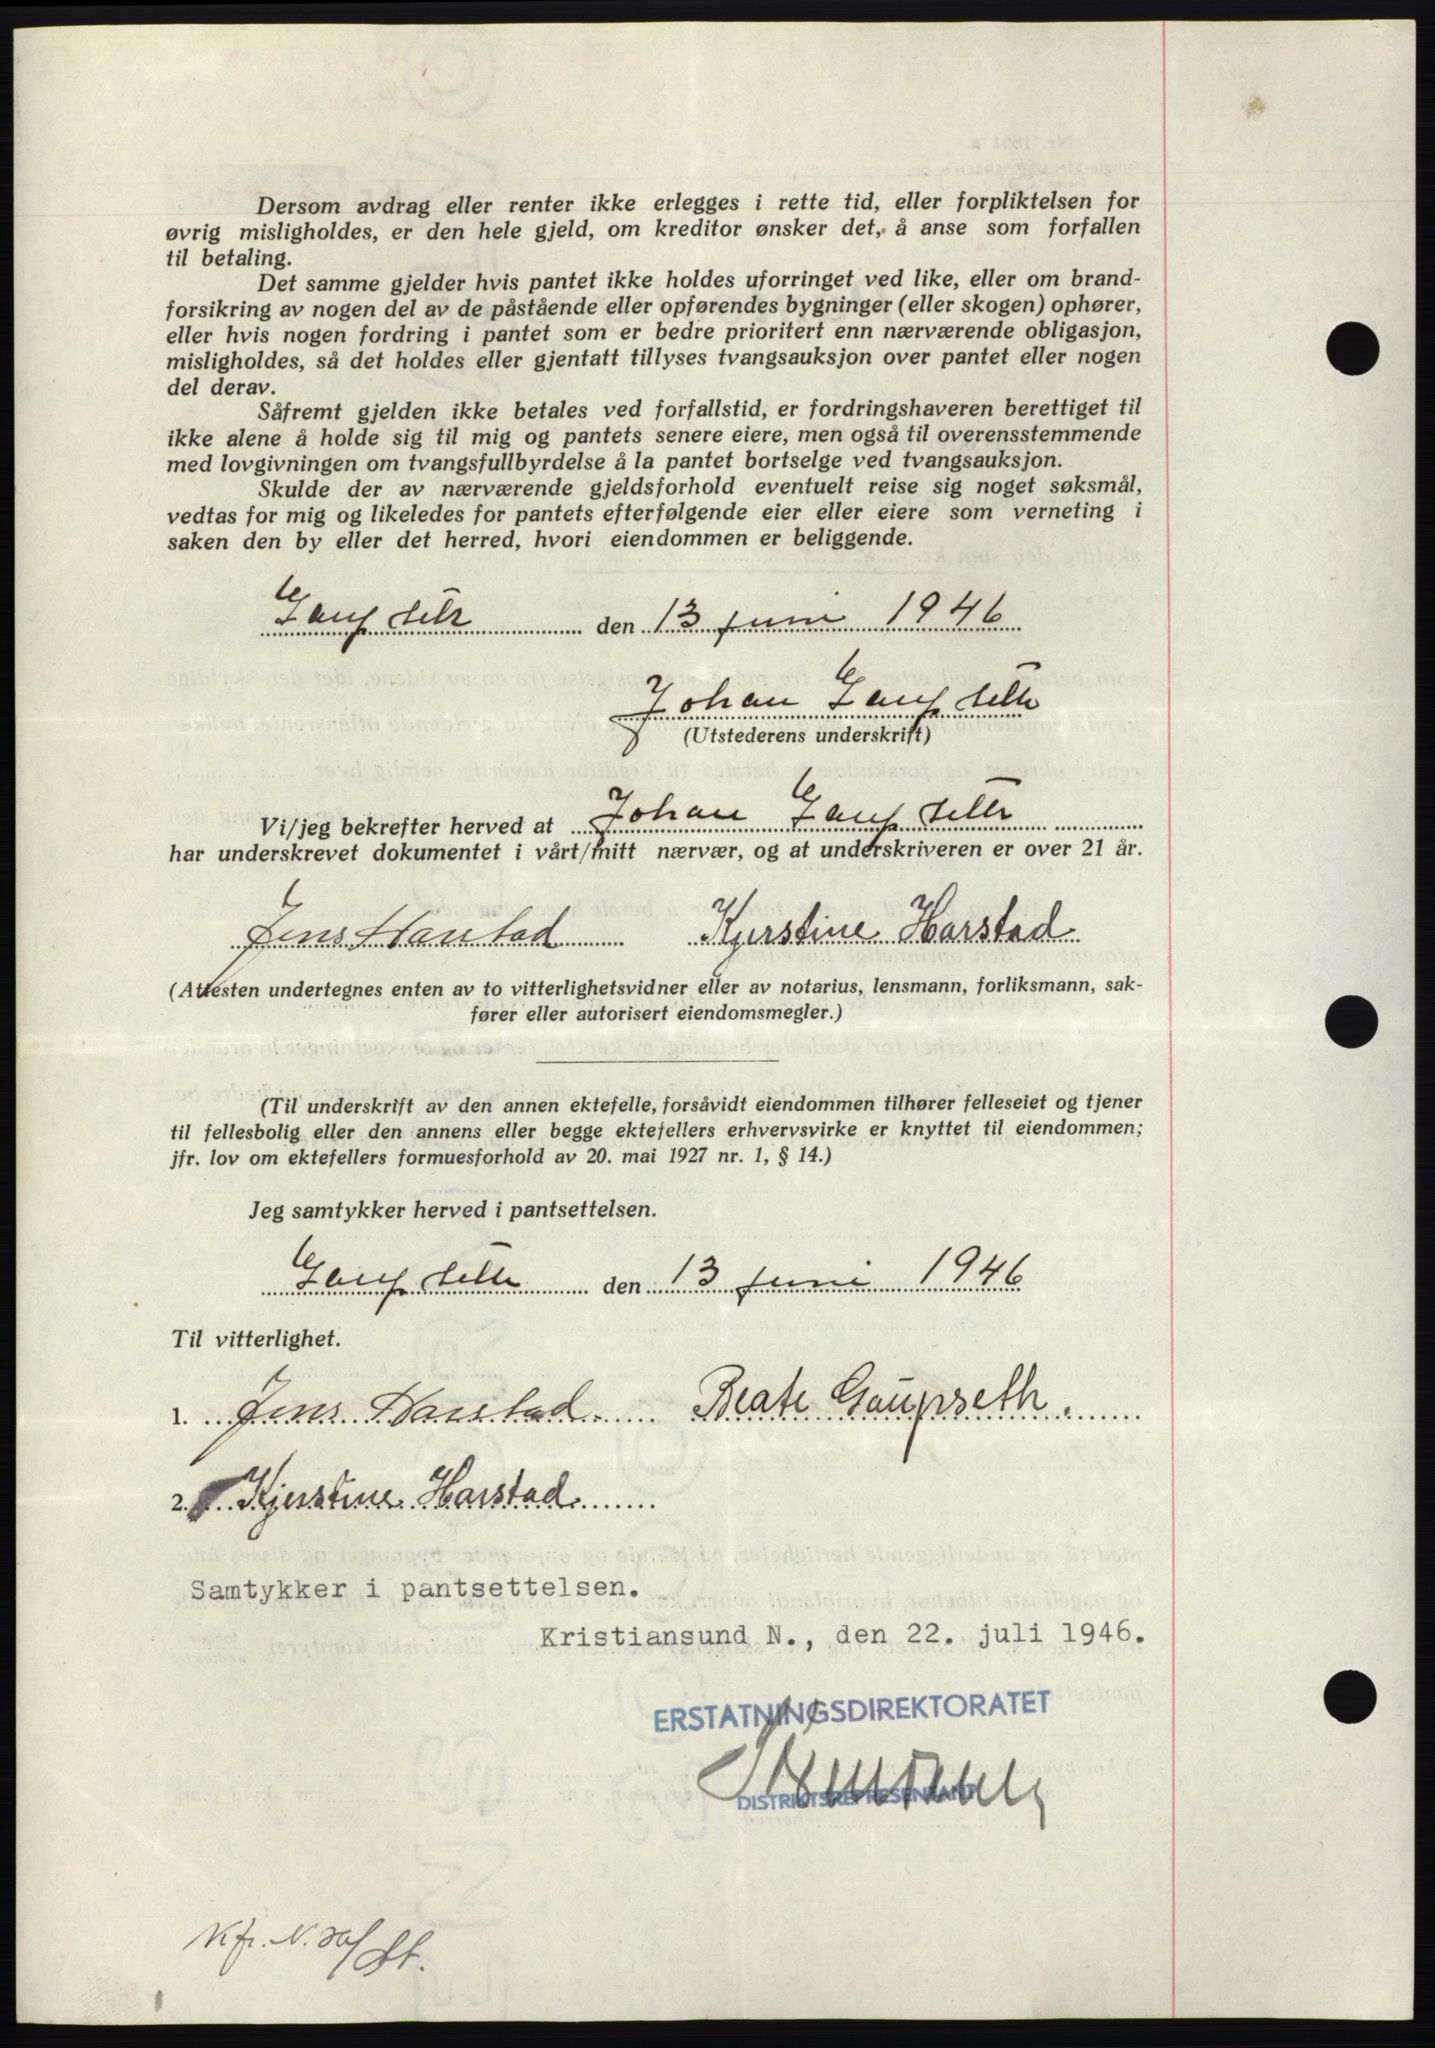 Dersom avdrag eller renter ikke erlegges i rette tid, eller forpliktelsen for
øvrig misligholdes, er den hele gjeld, om kreditor ønsker det, å anse som forfallen
til betaling.
Det samme gjelder hvis pantet ikke holdes uforringet ved like, eller om brand-
forsikring av nogen del av de påstående eller opførendes bygninger (eller skogen) ophører,
eller hvis nogen fordring i pantet som er bedre prioritert enn nærværende obligasjon,
misligholdes, så det holdes eller gjentatt tillyses tvangsauksjon over pantet eller nogen
del derav.
Såfremt gjelden ikke betales ved forfallstid, er fordringshaveren berettiget til
ikke alene å holde sig til mig og pantets senere eiere, men også til overensstemmende
med lovgivningen om tvangsfullbyrdelse å la pantet bortselge ved tvangsauksjon.
Skulde der av nærværende gjeldsforhold eventuelt reise sig noget søksmål,
vedtas for mig og likeledes for pantets efterfølgende eier eller eiere som verneting i
saken den by eller det herred, hvori eiendommen er beliggende.
den 13 juni 1946
Johan
(Utstederens underskrift)
Vi/jeg bekrefter herved at Johan
har underskrevet dokumentet i vårt/mitt nærvær, og at underskriveren er over 21 år.
Jens Harstad Kjerstine Harstad
(Attesten undertegnes enten av to vitterlighetsvidner eller av notarius, lensmann, forliksmann, sak-
fører eller autorisert eiendomsmegler.)
(Til underskrift av den annen ektefelle, forsåvidt eiendommen tilhører felleseiet og tjener
til fellesbolig eller den annens eller begge ektefellers erhvervsvirke er knyttet til eiendommen;
jfr. lov om ektefellers formuesforhold av 20. mai 1927 nr. 1, § 14.)
Jeg samtykker herved i pantsettelsen.
den 13 juni 1946
Til vitterlighet.
1. Jens Harstad Beate Gaupseth.
2. Kjerstine Harstad
Samtykker i pantsettelsen.
Kristiansund N., den 22. juli 1946.
ERSTATNINGSDIREKTORATET
DISTRIKTSREPRESENTANT